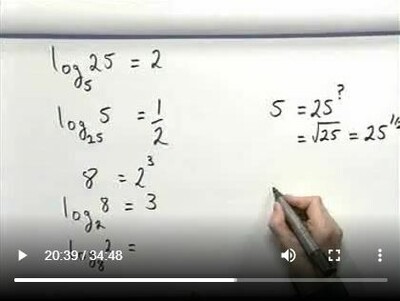 log₅25 = 2
log₂₅5 = 1/2
8 = 2³
log₂8 = 3
log₈2 =
5 = 25^?
= √25 = 25^1/2
20:39 / 34:48